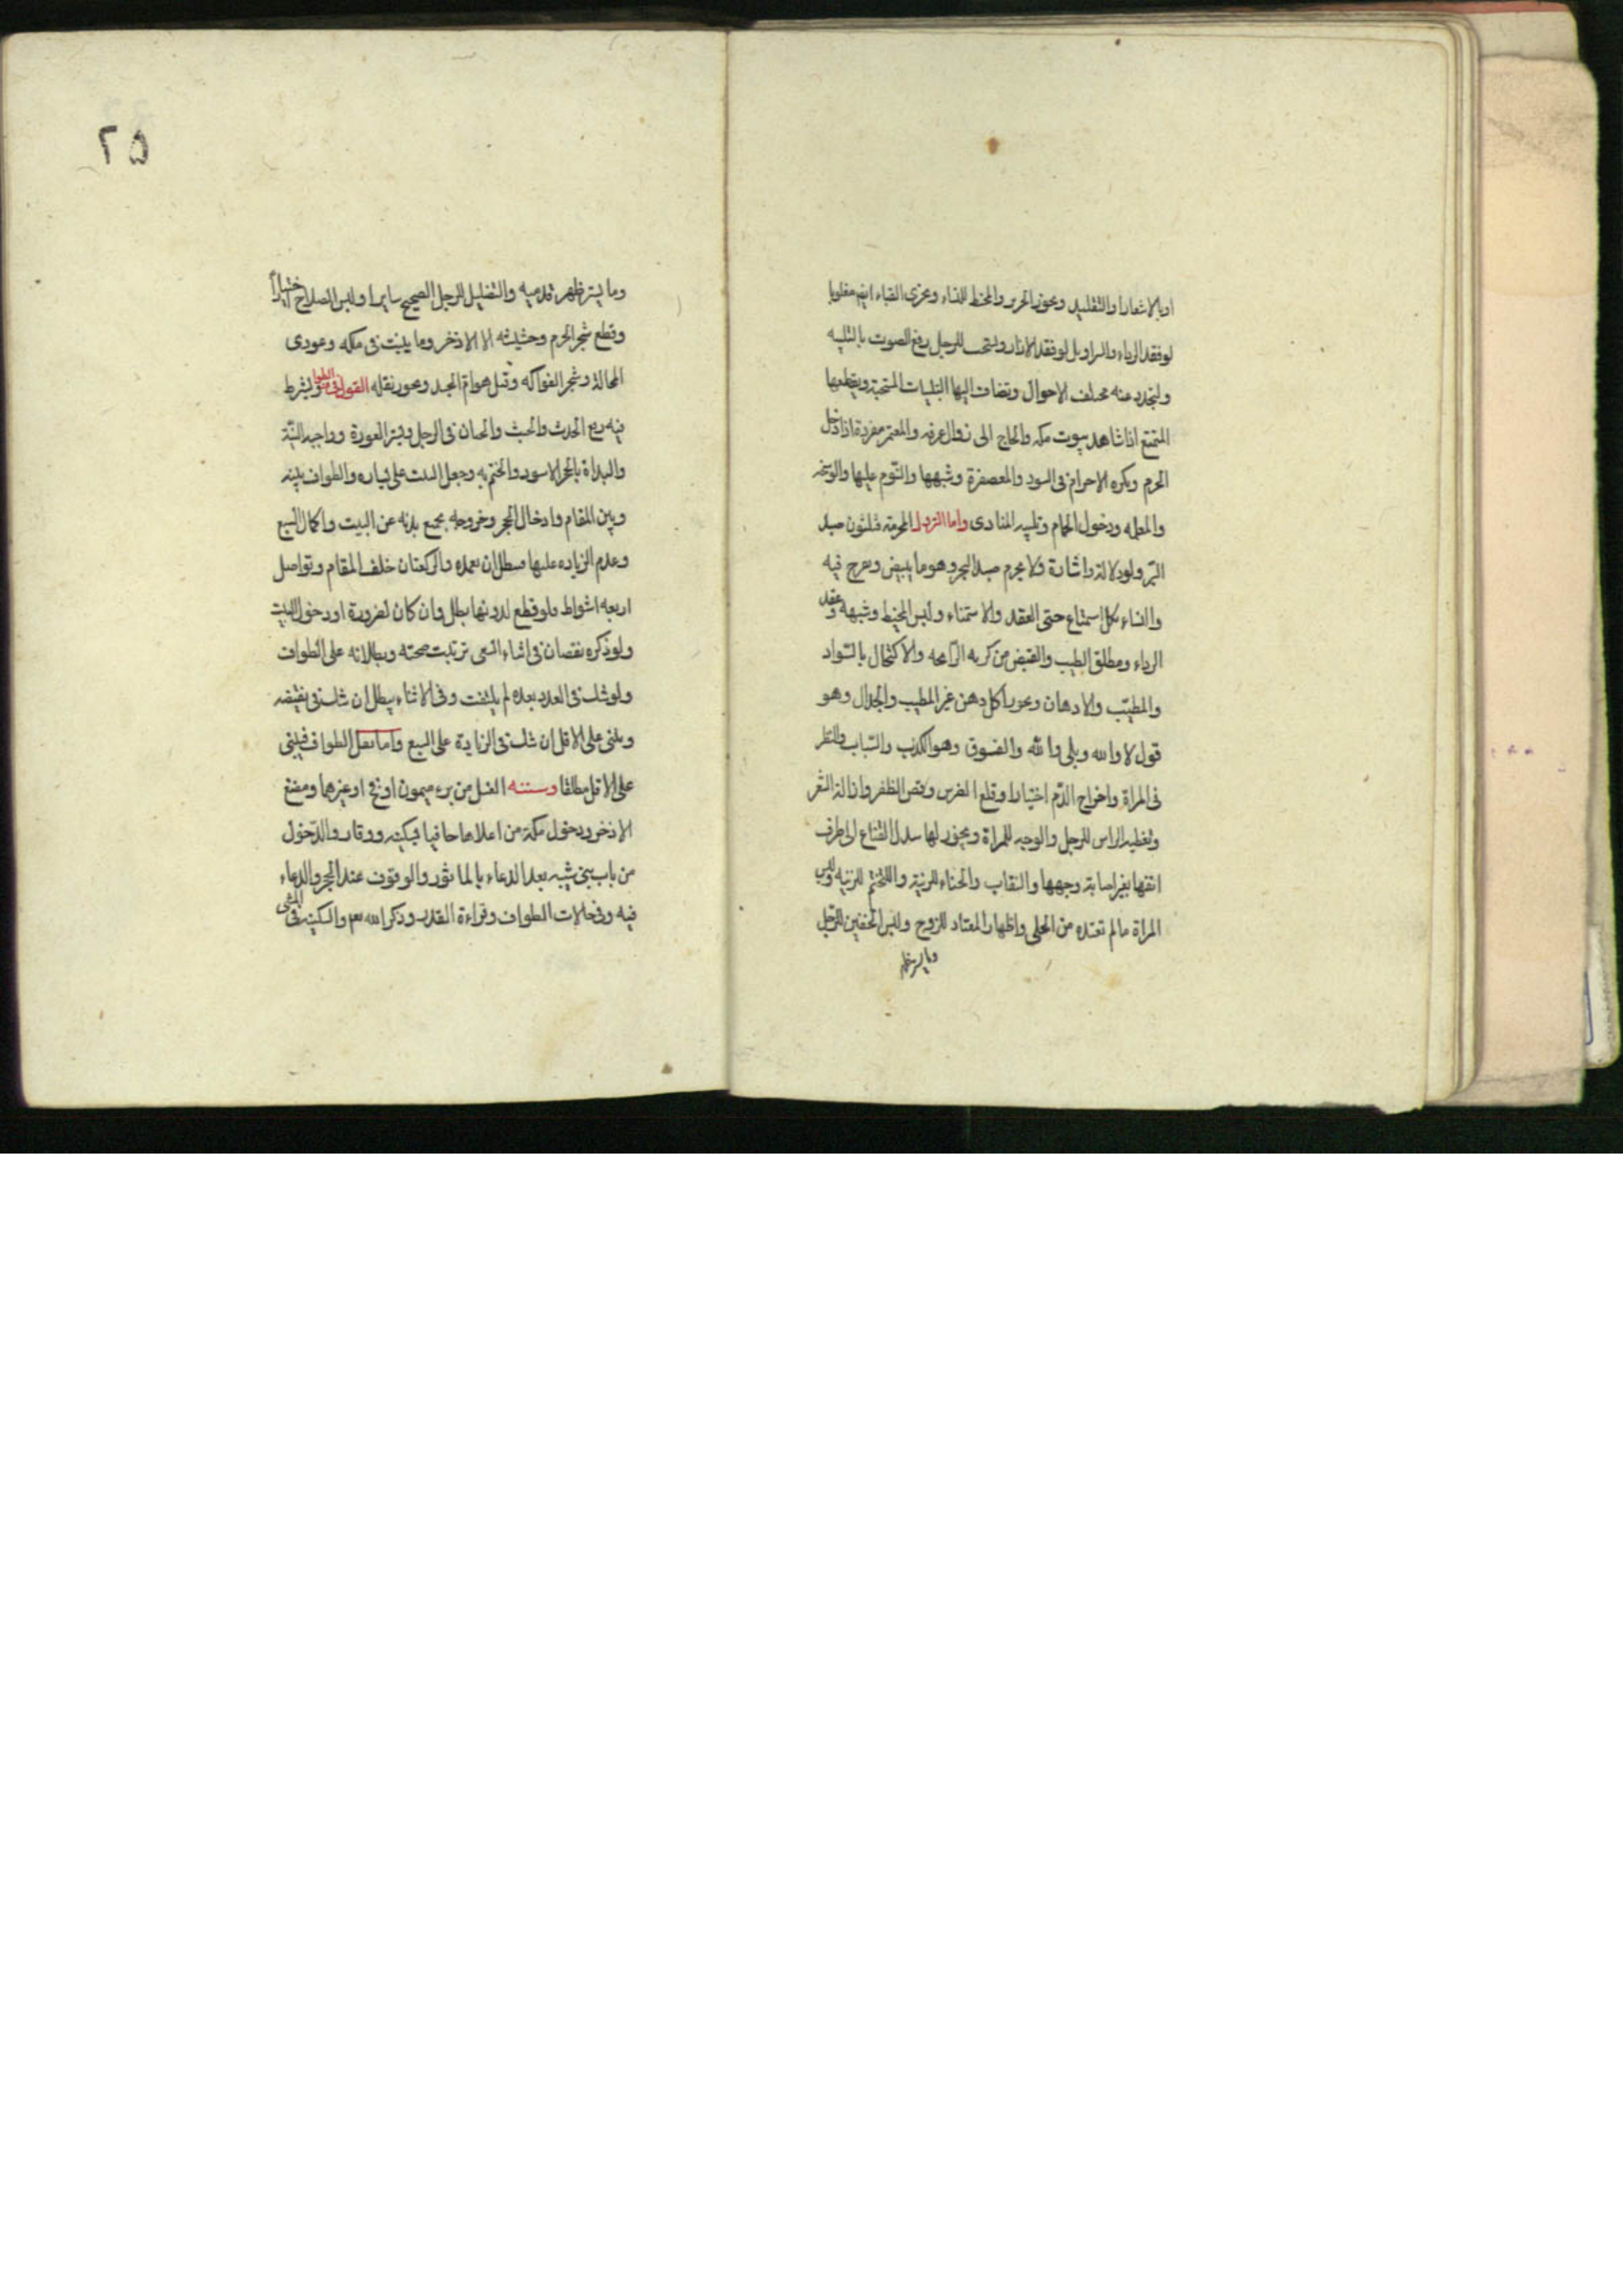 او بالاشعار او التقليد ويجوز الحرير والمخيط للنساء ويجزى القباء مقلوبا
لو فقد الرداء والسراويل لو فقد الازار ويستحب للرجل رفع الصوت بالتلبيه
وليجدد عند مختلف الاحوال ويضاف اليها التلبيات المستحبة ويقطعها
المتمتع اذا شاهد بيوت مكه والحاج الى زوال عرفه والمعتمر مفردة اذا دخل
الحرم ويكره الاحرام فى السود والمعصفرة وشبهها والنوم عليها والوسخه
والمعلمه ودخول الحمام وتلبيه المنادى واما التروك المحرمة فثلثون صيد
البر ولو دلالة واشارة ولا يحرم صيد البحر وهو ما يبيض ويفرخ فيه
والنساء بكل استمتاع حتى العقد والاستمناء ولبس المخيط وشبهه وعقد
الرداء ومطلق الطيب والقبض من كريه الرائحه والاكتحال بالسواد
والمطيب والادهان ويجوز اكل دهن غير المطيب والجدال وهو
قول لا والله وبلى والله والفسوق وهو الكذب والسباب والنظر
فى المراة واخراج الدم اختيارا وقلع الضرس وقص الظفر وازالة الشعر
وتغطيه الراس للرجل والوجه للمراة ويجوز لها سدل القناع الى طرف
انفها بغير اصابة وجهها والنقاب والحناء للزينة والتختم للزينه ولبس
المراة ما لم تعتده من الحلى واظهار المعتاد للزوج ولبس الخفين للرجل
وما يستر ظهر
٢٥
وما يستر ظهر قدميه والتظليل للرجل الصحيح سايرا ولبس السلاح اختيارا
وقطع شجر الحرم وحشيشه الا الاذخر وما ينبت فى ملكه وعودى
المحالة وشجر الفواكه وقتل هوام الجسد ويجوز نقله القول فى الطواف ويشترط
فيه رفع الحدث والخبث والختان فى الرجل وستر العورة وواجبه النية
والبداة بالحجر الاسود والختم به وجعل البيت على يساره والطواف بينه
وبين المقام وادخال الحجر وخروجه بجميع بدنه عن البيت واكمال السبع
وعدم الزياده عليها فيبطل ان تعمده والركعتان خلف المقام وتواصل
اربعه اشواط فلو قطع لدونها بطل وان كان لضرورة او دخول البيت
ولو ذكره نقصان فى اثناء السعى ترتبت صحته وبطلانه على الطواف
ولو شك فى العدد بعده لم يلتفت وفى الاثناء يبطل ان شك فى نقيضه
ويبنى على الاقل ان شك فى الزيادة على السبع واما نفل الطواف فيبنى
على الاقل مطلقا وسننه الغسل من بئر ميمون او فخ او غيرهما ومضغ
الاذخر ودخول مكة من اعلاها حافيا بسكينه ووقار والدخول
من باب بنى شيبه بعد الدعاء بالماثور والوقوف عند الحجر والدعاء
فيه وفى حالات الطواف وقراءة القدر وذكر الله تع والسكينه فى المشى